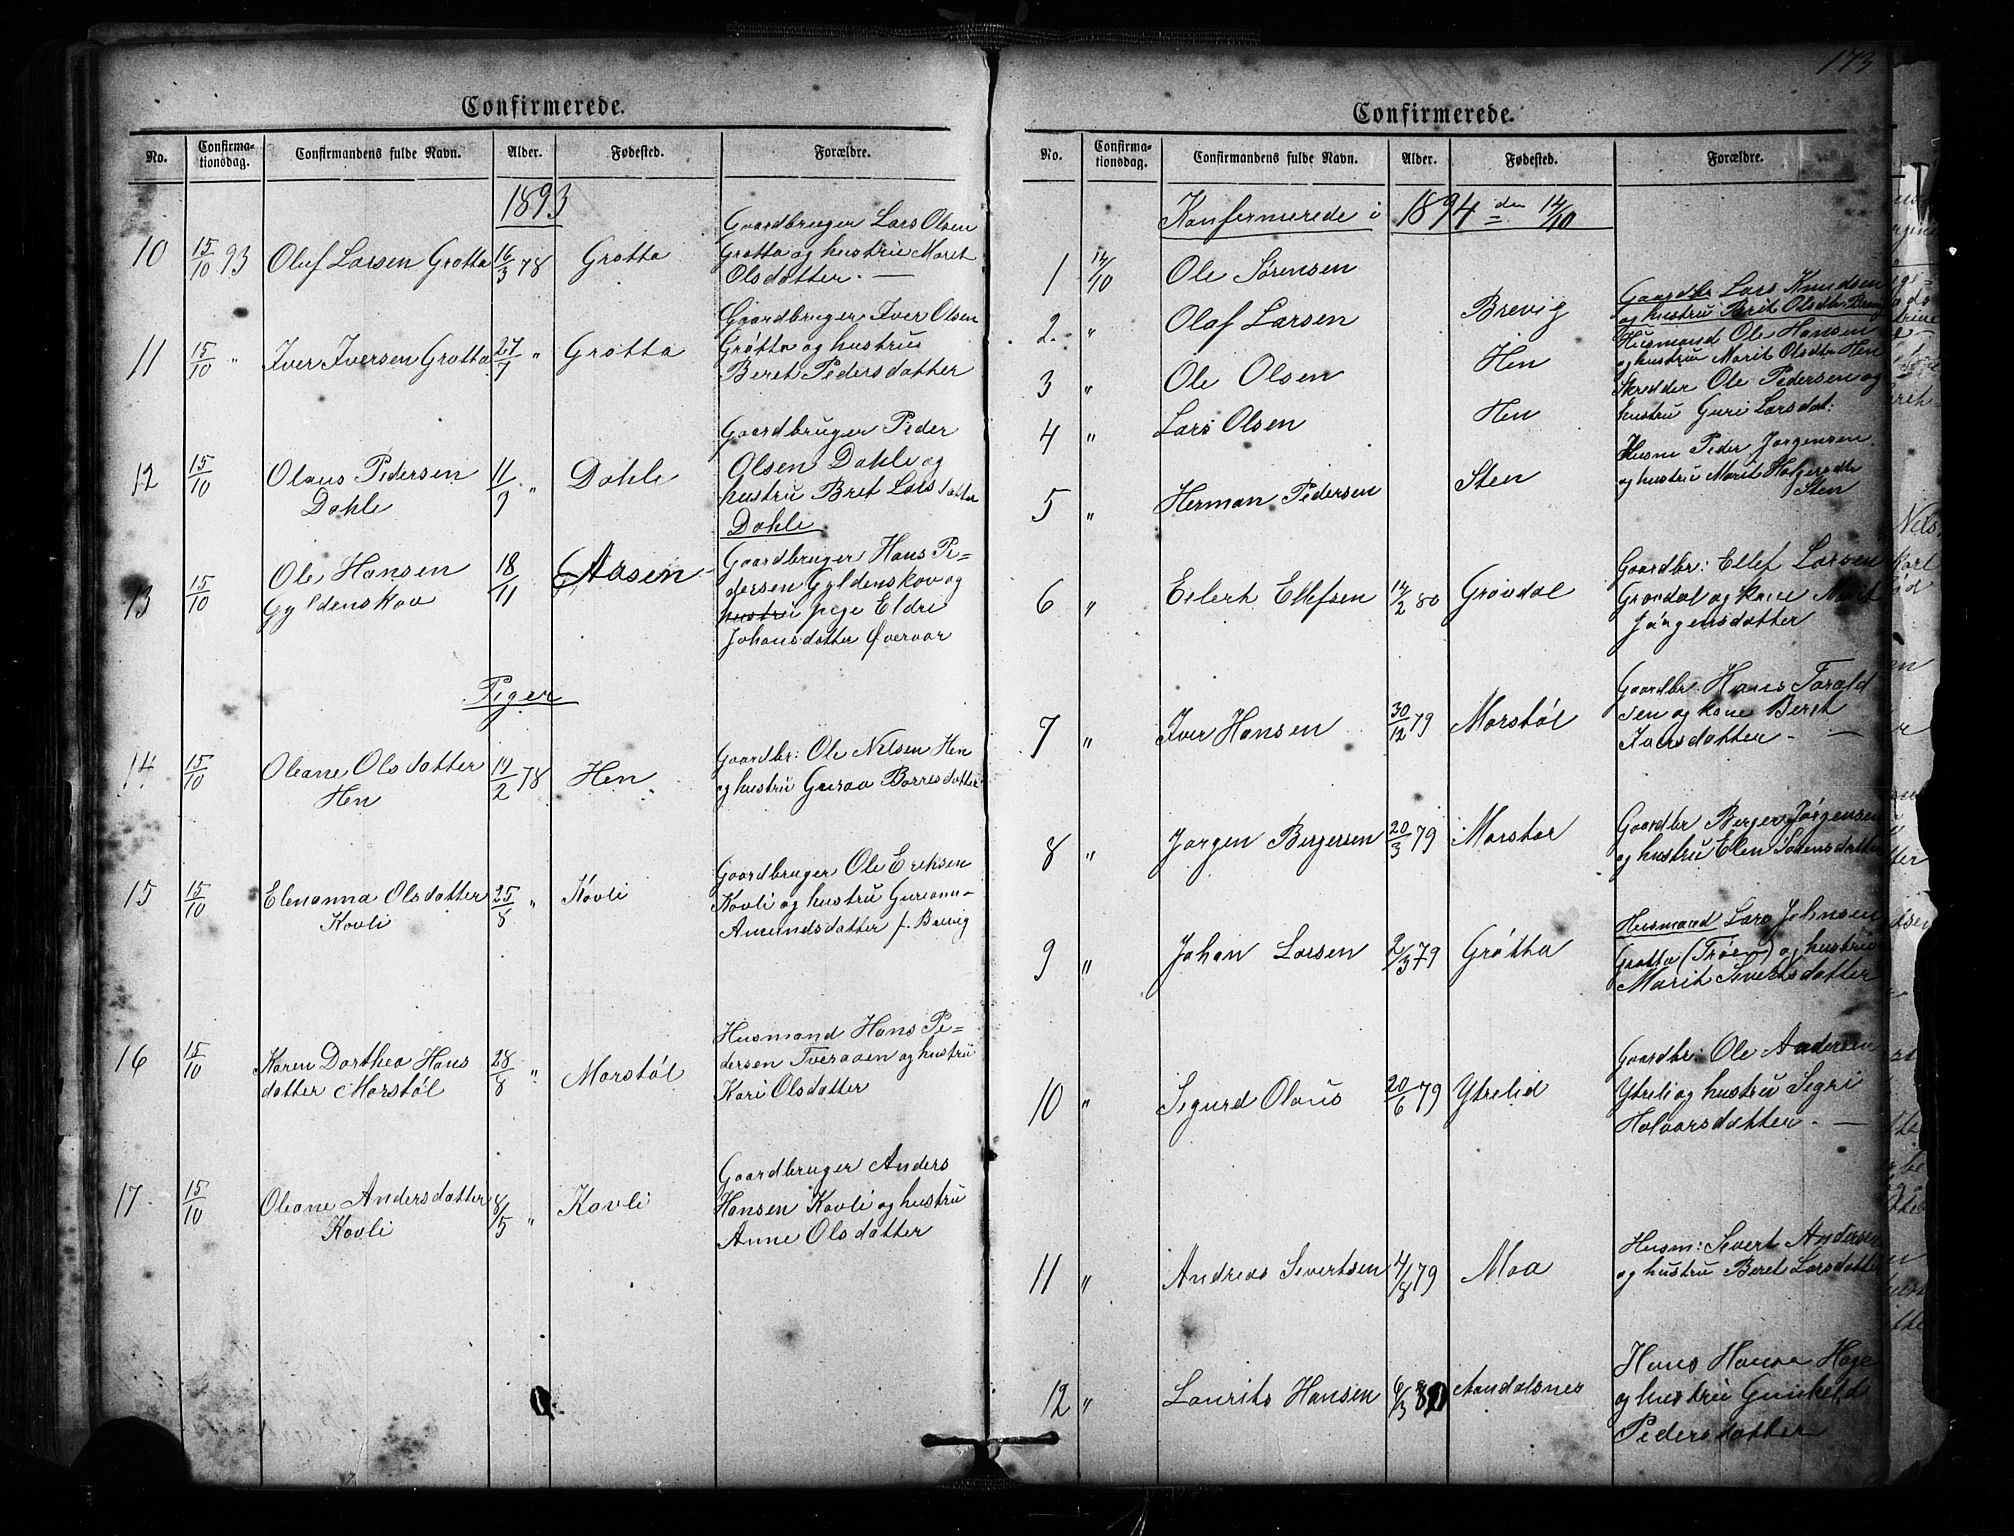 Confirmerede.
No. Confirma-tionsdag. Confirmandens fulde Navn. Alder. Fødested. Forældre.
1893
10 15/10 93 Oluf Larsen Grøtta 16/3 78 Grøtta
Gaardbruger Lars Olsen
Grøtta og hustru Marit
Olsdatter. —
11 15/10 " Iver Iversen Grøtta 27/7 " Grøtta
Gaardbruger Iver Olsen
Grøtta og hustru
Beret Pedersdatter
12 15/10 Olaus Pedersen 11/9 " Dahle
Dahle
Gaardbruger Peder
Olsen Dahle og
hustru Bret Larsdatter
Dahle
13 15/10 Ole Hansen 18/11 Aasen
Gyldenskov
Gaardbruger Hans Pe=
dersen Gyldenskov og
hustru pige Eldre
Johansdatter Øveraar
Piger
14 15/10 Oleane Olsdatter 19/2 78 Hen
Hen
Gaardbr: Ole Nilsen Hen
og hustru Guraa Borresdatter
15 15/10 Elenanna Olsdatter 25/8 " Kovli
Kovli
Gaardbruger Ole Eriksen
Kovli og hustru Gurianna
Amundsdatter f. Brevig
16 15/10 Karen Dorthea Hans 28/8 " Marstøl
datter Marstøl
Husmand Hans Pe=
dersen Tveraaen og hustru
Kari Olsdatter
17 15/10 Oleane Andersdatter 8/5 " Kavli
Kovli
Gaardbruger Anders
Hansen Kovli og hustru
Anne Olsdatter
173
Confirmerede.
No. Confirma-tionsdag. Confirmandens fulde Navn. Alder. Fødested. Forældre.
Konfermerede i 1894 den 14/10
1 14/10 Ole Sørensen
2. " Olaf Larsen Brevig
Gaardbr Lars Knudsen
og hustru Berit Olsdtr
3 " Ole Olsen Hen
Husmand Ole Hansen
og hustru Marit Olsdtr Hen
4 " Lars Olsen Hen
Skredder Ole Pedersen og
hustru Guri Larsdat:
5 " Herman Pedersen Sten
Husm Peder Jørgensen
og hustru Marit
Sten
6 " Eilert Ellefsen 14/2 80 Grøvdal
Gaardbr: Ellef Larsen
Grøvdal og Kone Marit
Jørgensdatter
7 " Iver Hansen 30/12 79 Marstøl
Gaardbr. Hans Torald
sen og kone Beret
Iversdatter - —
8 " Jørgen Bergersen 20/3 79 Marstøl
Gaardbr Berger Jørgensen
og hustru Elen Sørensdatter
9 " Johan Larsen 2/3 79 Grøtta
Husmand Lars Johnsen
Grøtta (Trøen) og hustru
Marit Sivertsdatter
10 " Sigurd Olaus 20/6 79 Ytrelid
Gaardbr: Ole Andersen
Ytreli og hustru Segri
Halvorsdatter. —
11 " Andreas Sivertsen 4/8 79 Moa
Husm: Sivert Andersen
og hustru Beret Larsdatter
12 " Laurits Hansen 6/3 Aandalsnes
Hans Hansen Hage
og hustru Gunhild
Pedersdatter